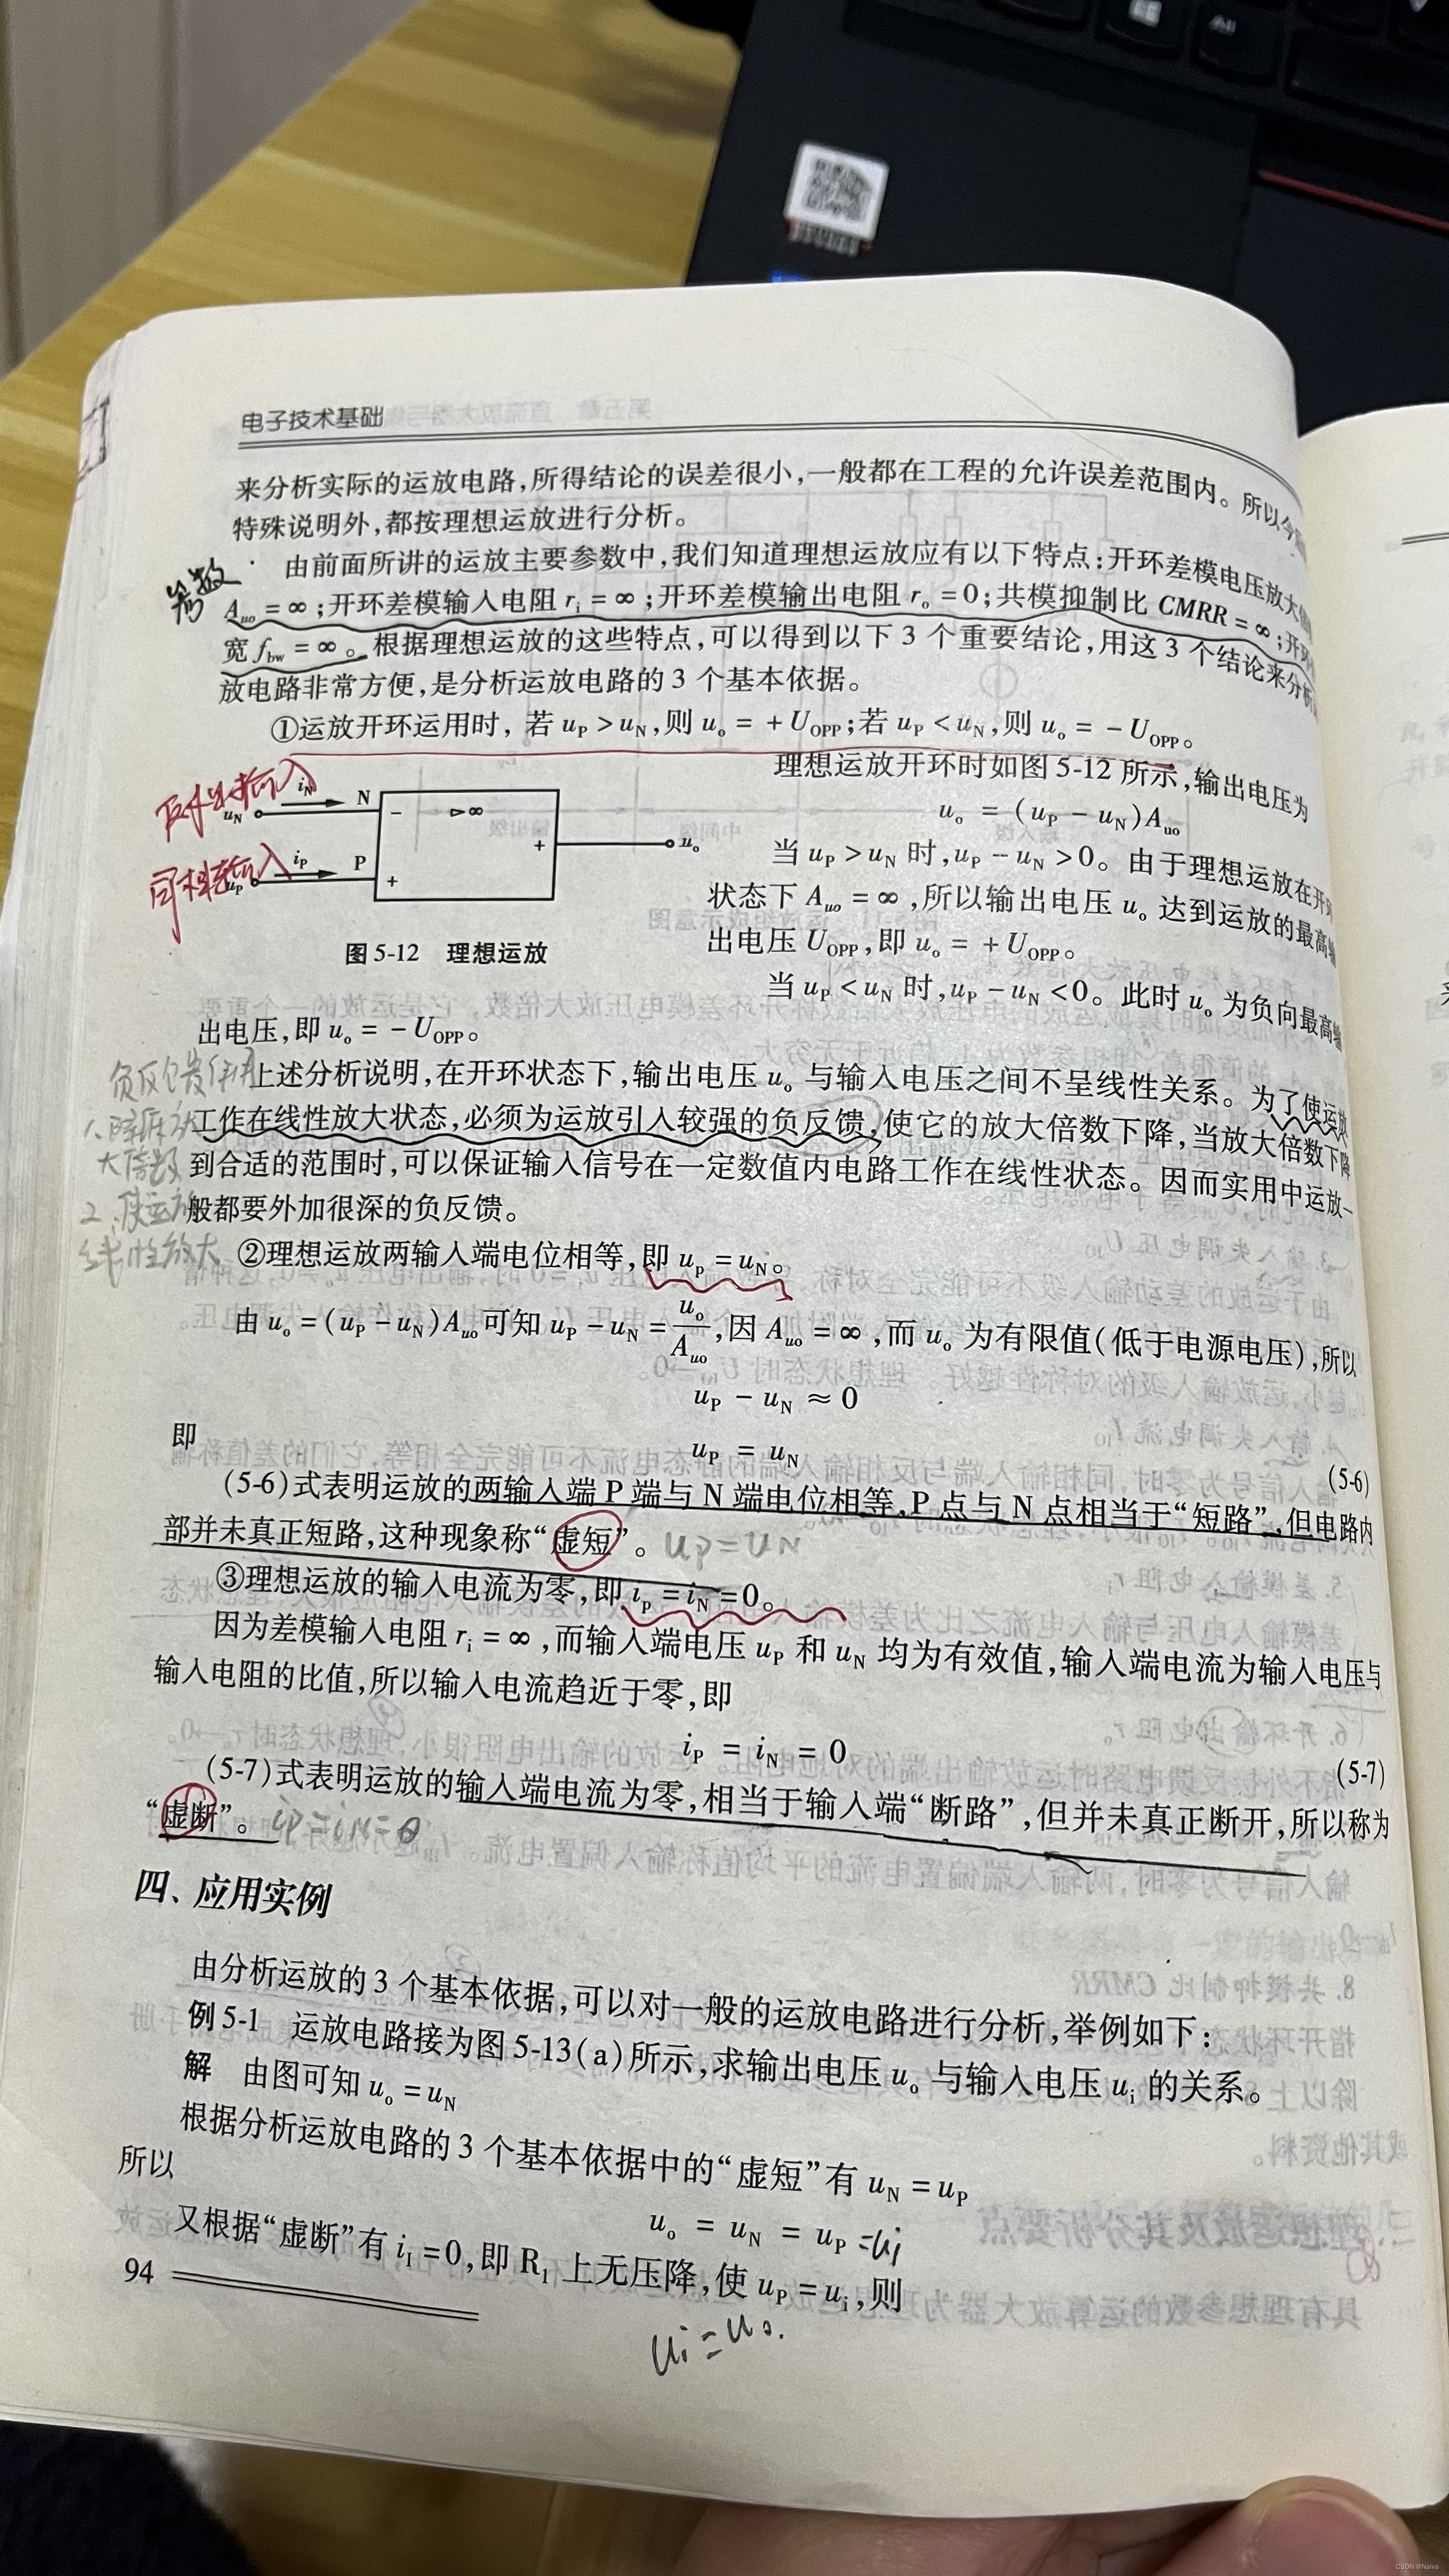 电子技术基础
来分析实际的运放电路,所得结论的误差很小,一般都在工程的允许误差范围内。所以今
特殊说明外,都按理想运放进行分析。
由前面所讲的运放主要参数中,我们知道理想运放应有以下特点:开环差模电压放大
参数
A_uo = ∞;开环差模输入电阻 r_i = ∞;开环差模输出电阻 r_o = 0;共模抑制比 CMRR = ∞;开环
宽 f_bw = ∞。根据理想运放的这些特点,可以得到以下 3 个重要结论,用这 3 个结论来分析
放电路非常方便,是分析运放电路的 3 个基本依据。
①运放开环运用时,若 u_P > u_N,则 u_o = + U_OPP;若 u_P < u_N,则 u_o = − U_OPP。
反相输入
u_N
i_N
N
−
▷∞
+
u_o
同相输入
u_P
i_P
P
+
图 5-12 理想运放
理想运放开环时如图 5-12 所示,输出电压为
u_o = (u_P − u_N)A_uo
当 u_P > u_N 时,u_P − u_N > 0。由于理想运放在开环
状态下 A_uo = ∞,所以输出电压 u_o 达到运放的最高输
出电压 U_OPP,即 u_o = + U_OPP。
当 u_P < u_N 时,u_P − u_N < 0。此时 u_o 为负向最高输
出电压,即 u_o = − U_OPP。
负反馈作用
1、降低放
大倍数
2、使运放
线性放大
上述分析说明,在开环状态下,输出电压 u_o 与输入电压之间不呈线性关系。为了使运放
工作在线性放大状态,必须为运放引入较强的负反馈,使它的放大倍数下降,当放大倍数下降
到合适的范围时,可以保证输入信号在一定数值内电路工作在线性状态。因而实用中运放一
般都要外加很深的负反馈。
②理想运放两输入端电位相等,即 u_p = u_N。
由 u_o = (u_P − u_N)A_uo 可知 u_P − u_N = u_o/A_uo,因 A_uo = ∞,而 u_o 为有限值(低于电源电压),所以
u_P − u_N ≈ 0
即
u_P = u_N (5-6)
(5-6)式表明运放的两输入端 P 端与 N 端电位相等,P 点与 N 点相当于“短路”,但电路内
部并未真正短路,这种现象称“虚短”。 up = uN
③理想运放的输入电流为零,即 i_p = i_N = 0。
因为差模输入电阻 r_i = ∞,而输入端电压 u_P 和 u_N 均为有效值,输入端电流为输入电压与
输入电阻的比值,所以输入电流趋近于零,即
i_P = i_N = 0 (5-7)
(5-7)式表明运放的输入端电流为零,相当于输入端“断路”,但并未真正断开,所以称为
“虚断”。 ip = iN = 0
四、应用实例
由分析运放的 3 个基本依据,可以对一般的运放电路进行分析,举例如下:
例 5-1 运放电路接为图 5-13(a)所示,求输出电压 u_o 与输入电压 u_i 的关系。
解 由图可知 u_o = u_N
根据分析运放电路的 3 个基本依据中的“虚短”有 u_N = u_P
所以
u_o = u_N = u_P = ui
又根据“虚断”有 i_I = 0,即 R_1 上无压降,使 u_P = u_i,则
ui = uo.
94
CSDN @Naiva